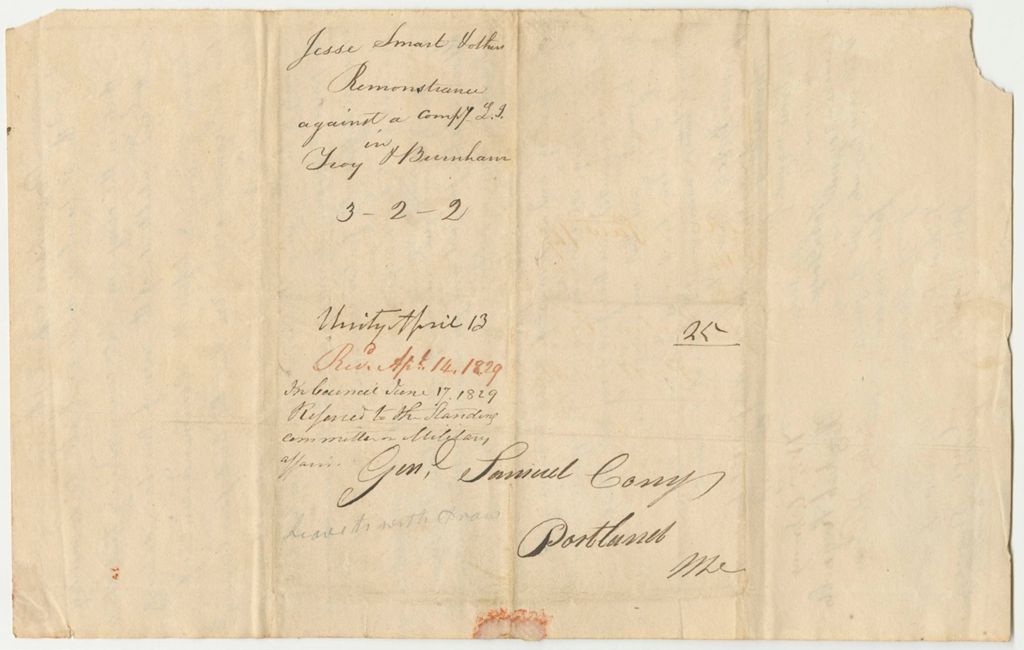 Jesse Smart & others
Remonstrance
against a compy L.I.
in
Troy & Burnham
3-2-2
Unity April 13
25
Recd. Apl. 14. 1829
In Council June 17. 1829
Referred to the Standing
committee on Military
affairs.
Genl. Samuel Cony
Leave to withdraw
Portland
Me